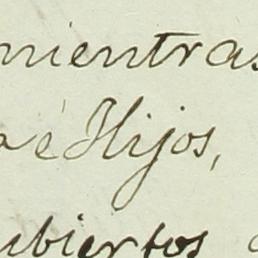 mientras
é Hijos,
ubiertos